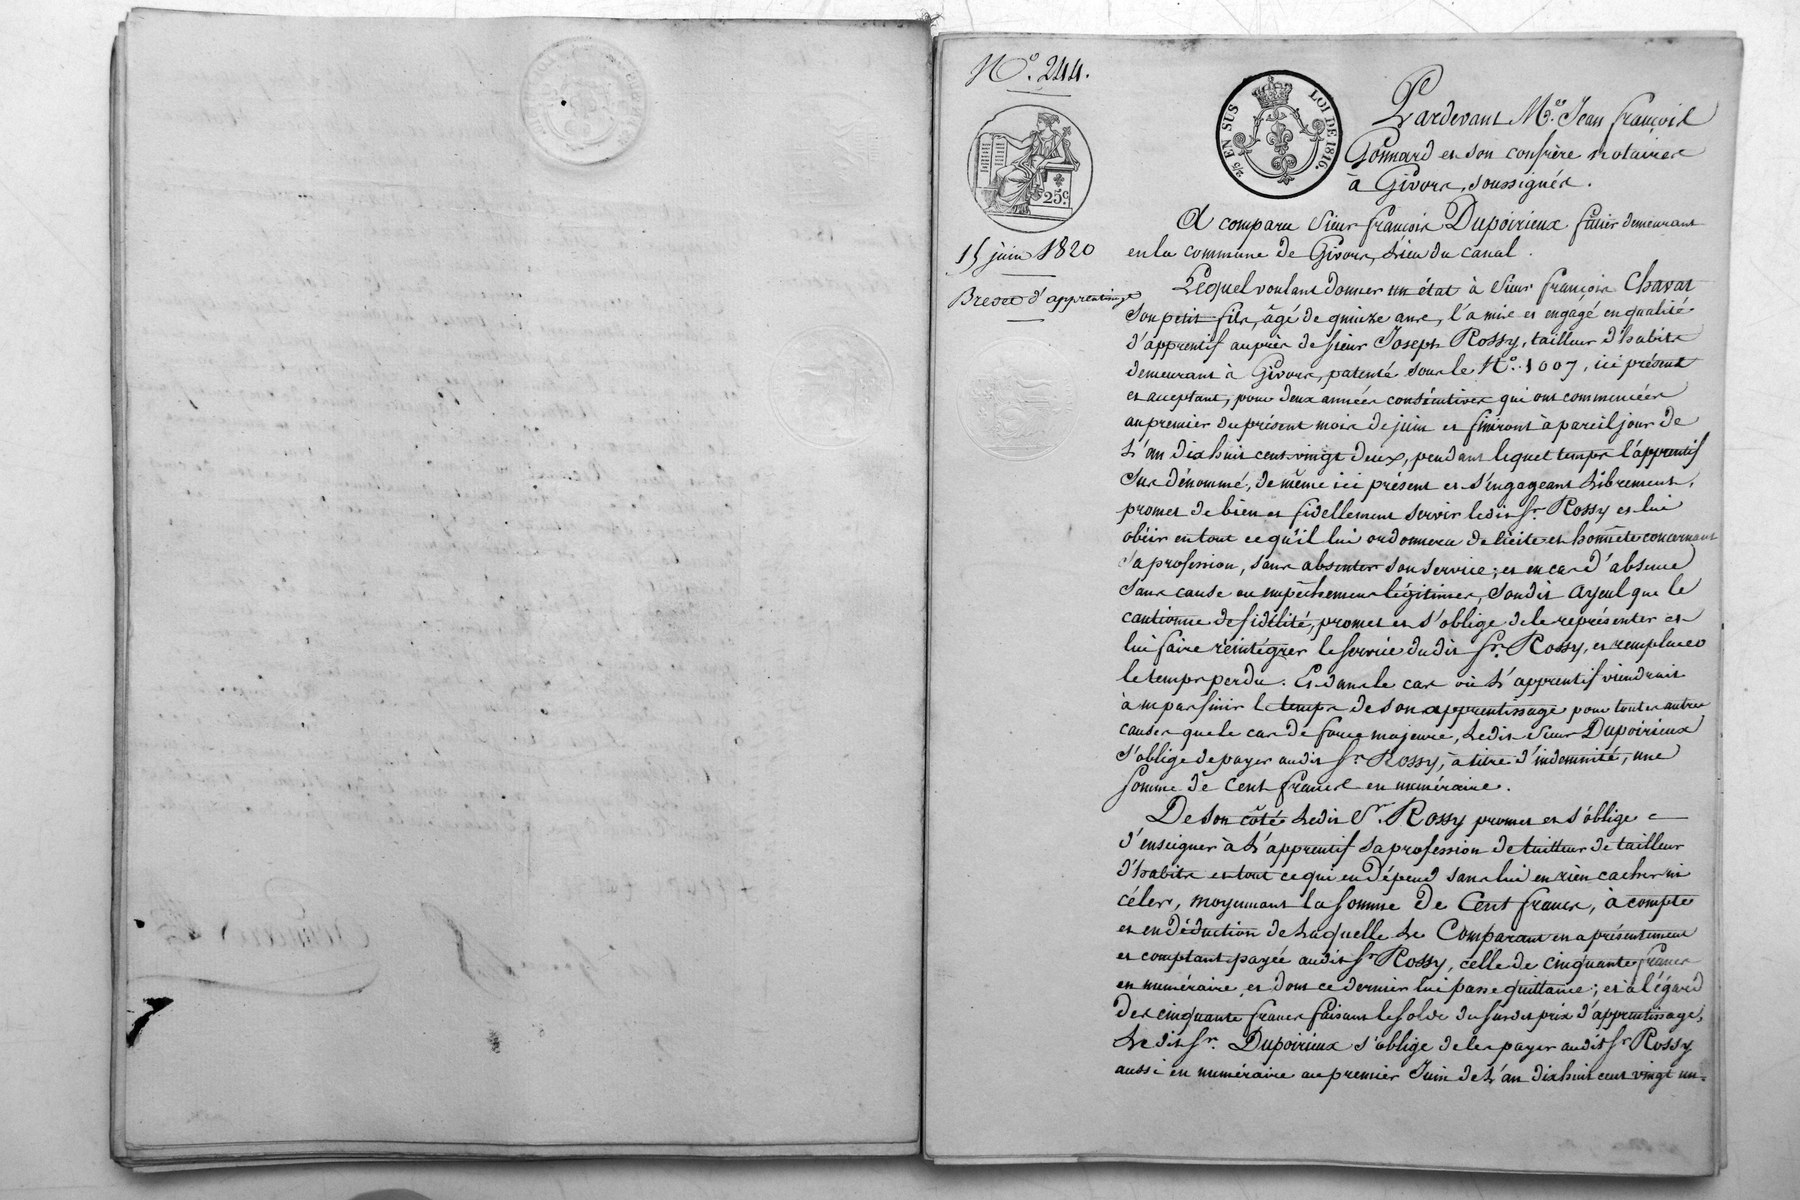 N.º 244.
2/5 EN SUS LOI DE 1816.
25.c
15 juin 1820
Brevet d'apprentissage
Pardevant M.e Jean françois
Gonnard et son confrère notaires
à Givors, soussignés.
A comparu Sieur françois Dupoirieux demeurant
en la commune de Givors, Lieu du canal.
Lequel voulant donner un état à Sieur françois Chavas
son petit fils, âgé de quinze ans, l'a mis et engagé en qualité
d'apprentif auprès de sieur Joseph Rossy, tailleur d'habits
demeurant à Givors, patenté sous le N.º 1007, ici présent
et acceptant, pour deux années consécutives qui ont commencées
au premier du présent mois de juin et finiront à pareil jour de
L'an dix huit cent vingt deux, pendant lequel temps l'apprentif
sus dénommé, de même ici présent et s'engageant Librement,
promet de bien et fidellement servir ledit Sr. Rossy et lui
obéir en tout ce qu'il lui ordonnera de licite et honnête concernant
sa profession, sans absenter son service; et en cas d'absence
sans cause ou empêchement légitimes, son dit ayeul que le
cautionne de fidélité, promet et s'oblige de le représenter et
lui faire réintégrer le service du dit Sr. Rossy, et remplacer
le temps perdu. Et dans le cas où L'apprentif viendrait
à imparfinir le temps de son apprentissage pour toutes autres
causes que le cas de force majeure, Ledit Sieur Dupoirieux
s'oblige de payer audit Sr. Rossy, à titre d'indemnité, une
somme de Cent francs en numéraire.
De son côté Ledit Sr. Rossy promet et s'oblige
d'enseigner à L'apprentif sa profession de tailleur de tailleur
d'habits et tout ce qui en dépend sans lui en rien cacher ni
céler, moyennant la somme de Cent francs, à compte
et en déduction de Laquelle Le Comparant en a présentement
et comptant payée audit Sr. Rossy, celle de cinquante francs
en numéraire, et dont ce dernier lui passe quittance; et à l'égard
des cinquante francs faisant le solde du susdit prix d'apprentissage,
Ledit Sr. Dupoirieux s'oblige de les payer audit Sr. Rossy
aussi en numéraire au premier Juin de L'an dix huit cent vingt un